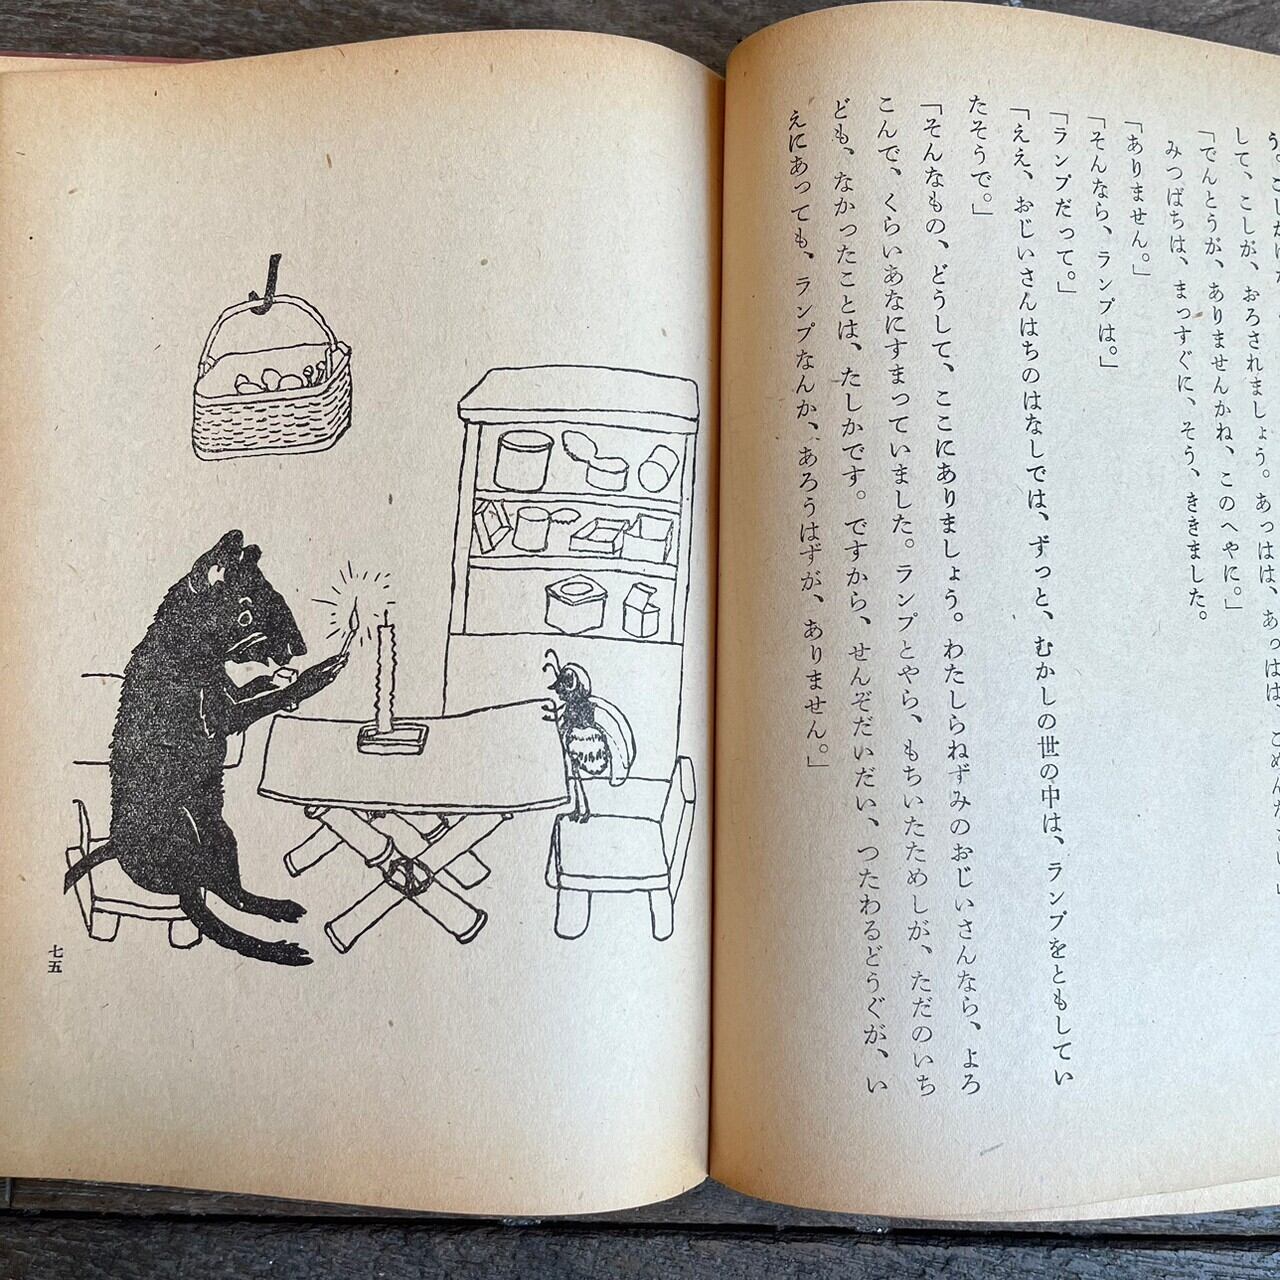 して、こしが、おろされましょう。あっはは、あっはは、ごめんなさい。」
「でんとうが、ありませんかね、このへやに。」
みつばちは、まっすぐに、そう、ききました。
「ありません。」
「そんなら、ランプは。」
「ランプだって。」
「ええ、おじいさんはちのはなしでは、ずっと、むかしの世の中は、ランプをともしてい
たそうで。」
「そんなもの、どうして、ここにありましょう。わたしらねずみのおじいさんなら、よろ
こんで、くらいあなにすまっていました。ランプとやら、もちいたためしが、ただのいち
ども、なかったことは、たしかです。ですから、せんぞだいだい、つたわるどうぐが、い
えにあっても、ランプなんか、あろうはずが、ありません。」
七五